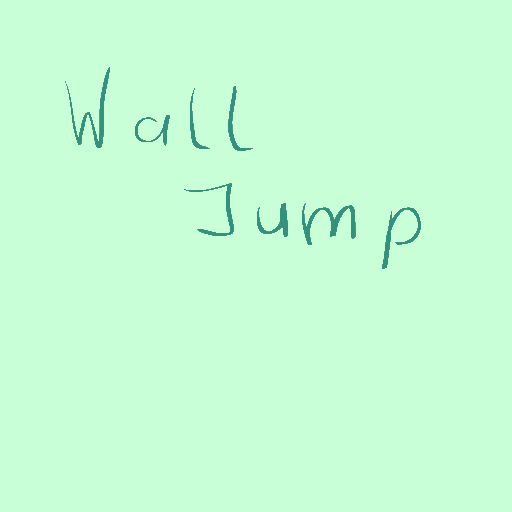 Wall
Jump